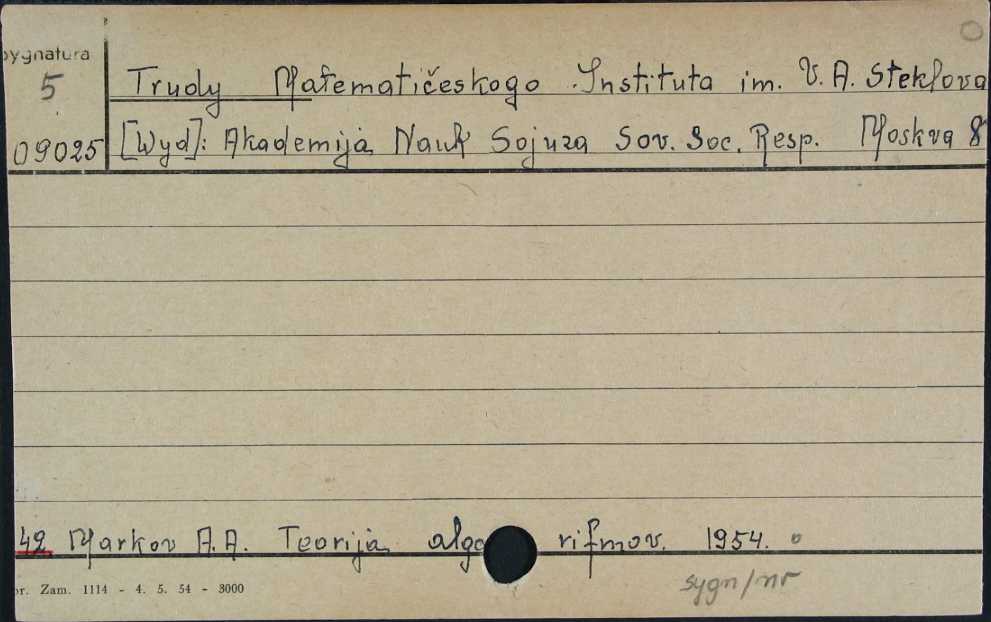 Sygnatura
5
09025
Trudy Matematičeskogo Instituta im. V. A. Steklova
[Wyd]: Akademija Nauk Sojuza Sov. Soc. Resp. Moskva 8°
42 Markov A. A. Teorija algorifmov. 1954.
pr. Zam. 1114 - 4. 5. 54 - 3000
sygn/nr